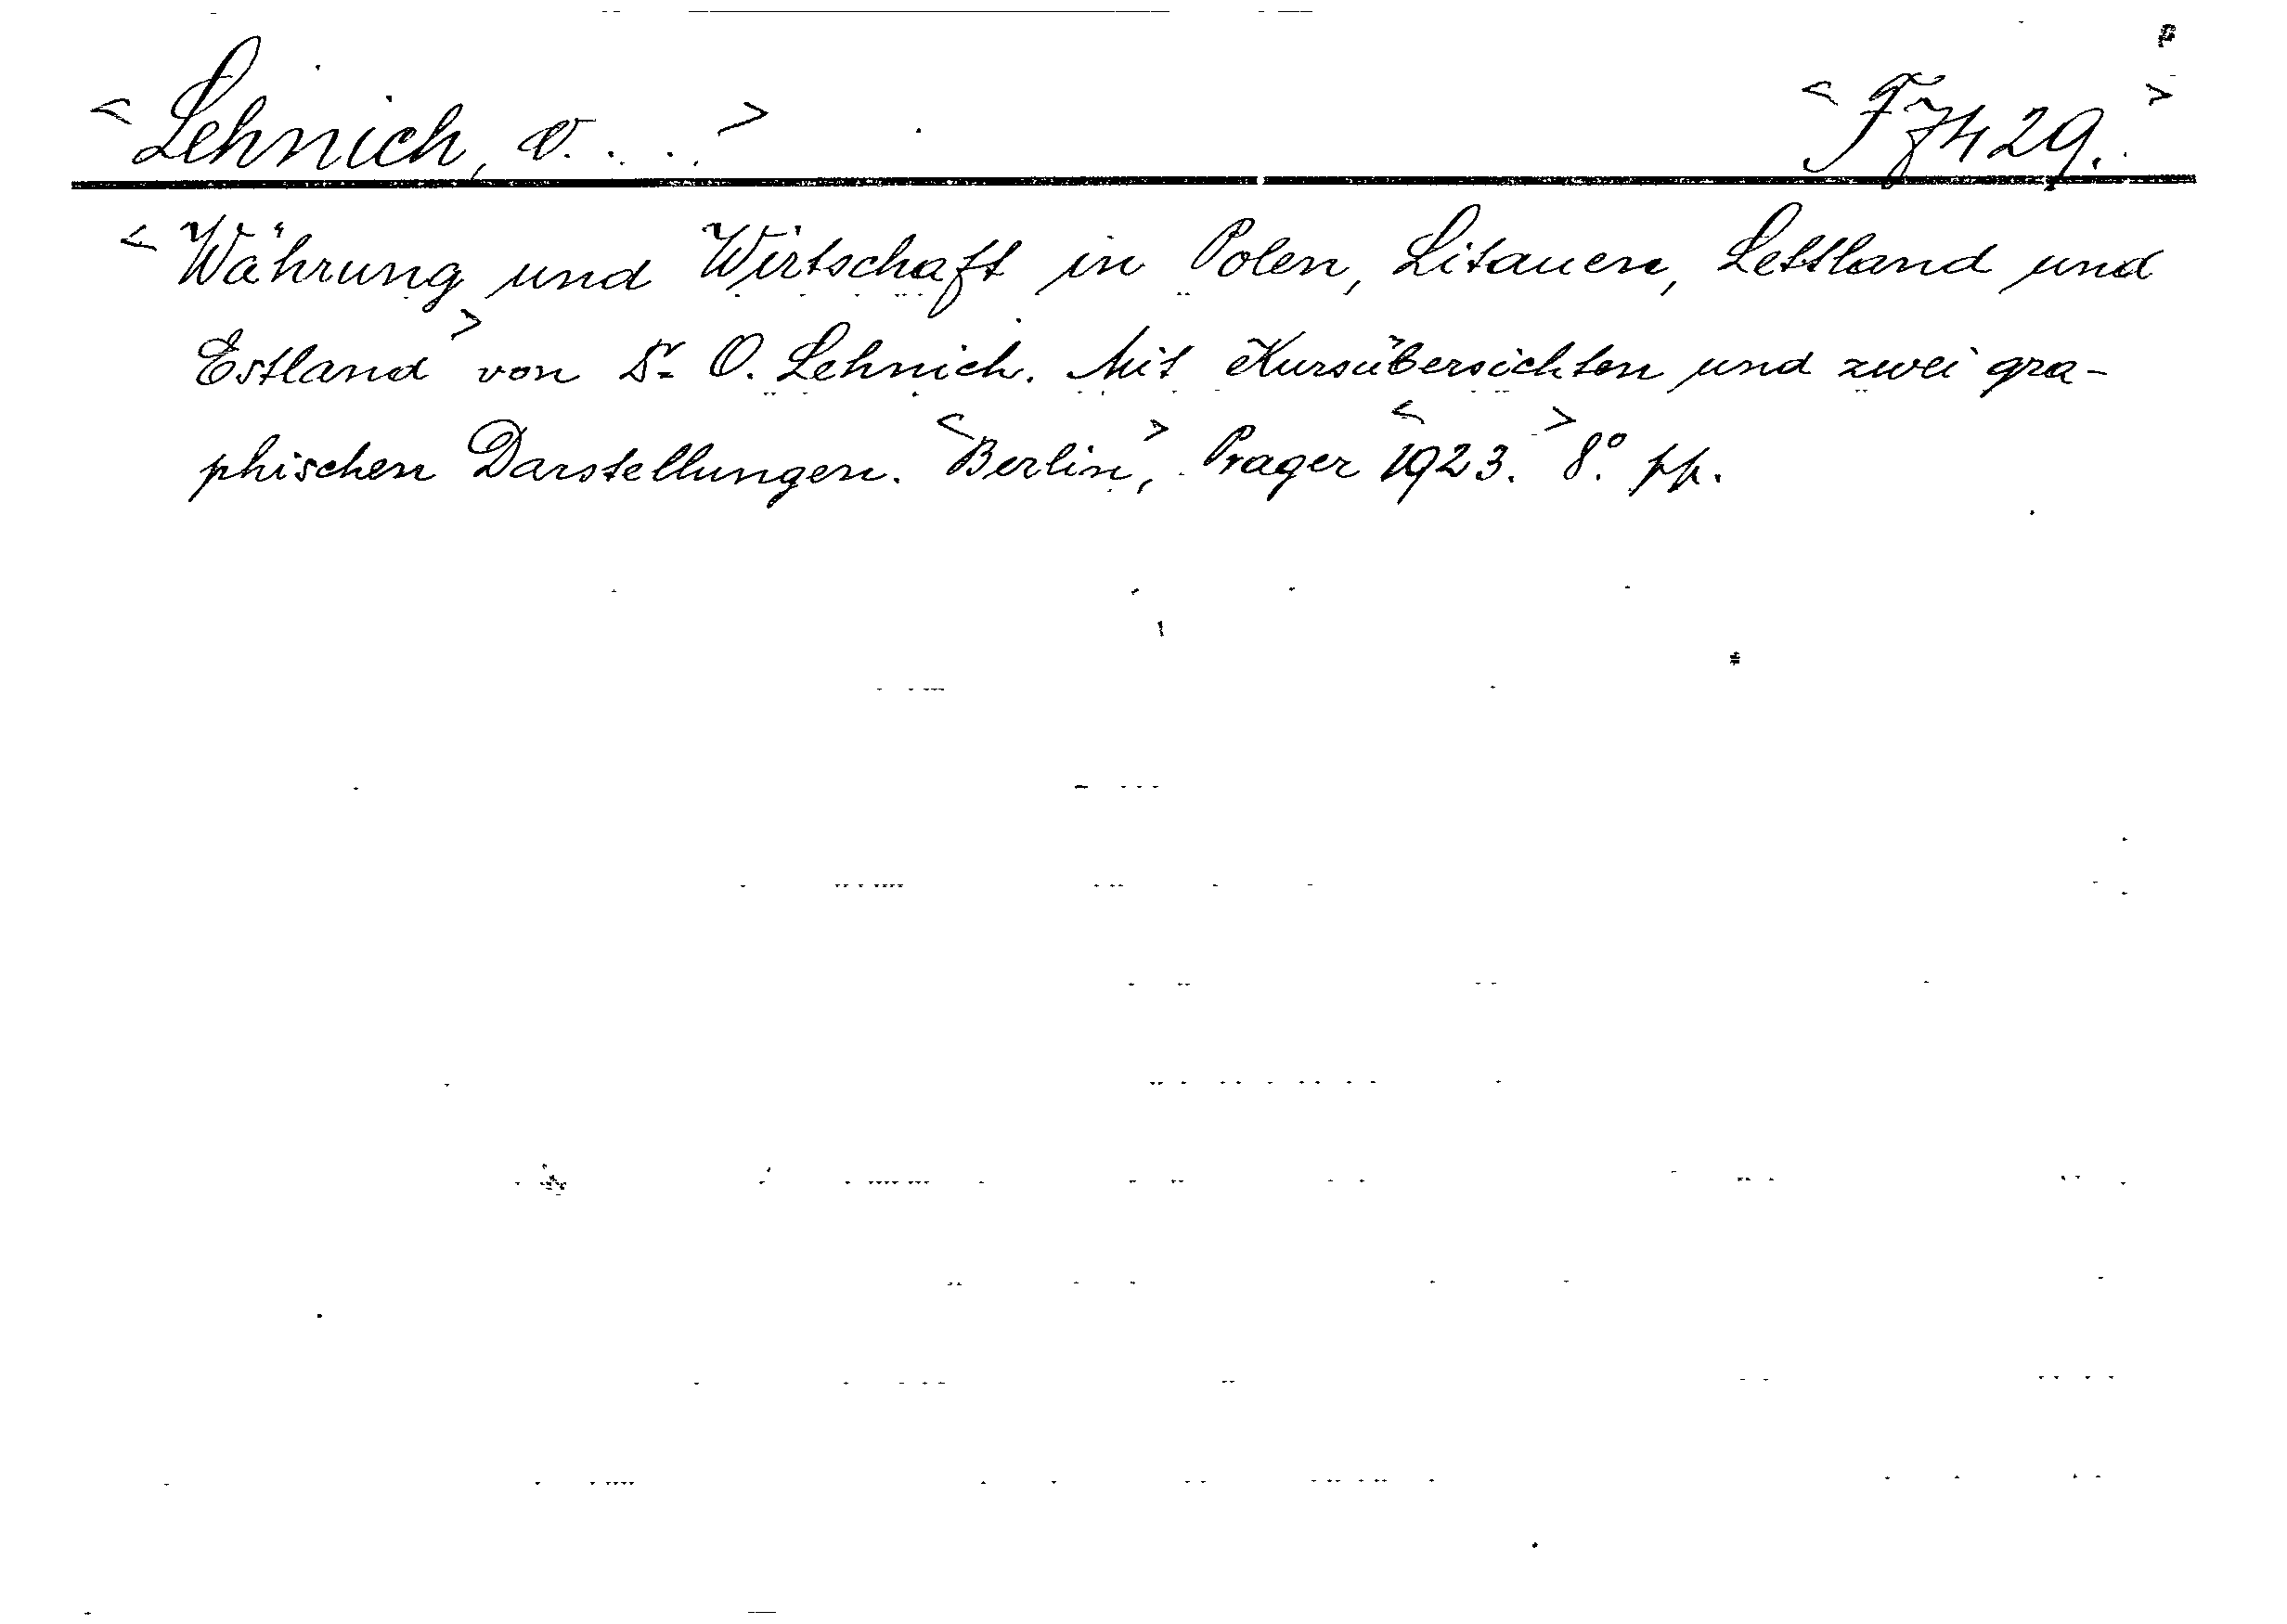 <Lehnich, O. . . .> <F 7429.>
<Währung und Wirtschaft in Polen, Litauen, Lettland und
Estland> von Dr. O. Lehnich. Mit Kursübersichten und zwei gra-
phischen Darstellungen. <Berlin>, Prager <1923.> 8°. pp.